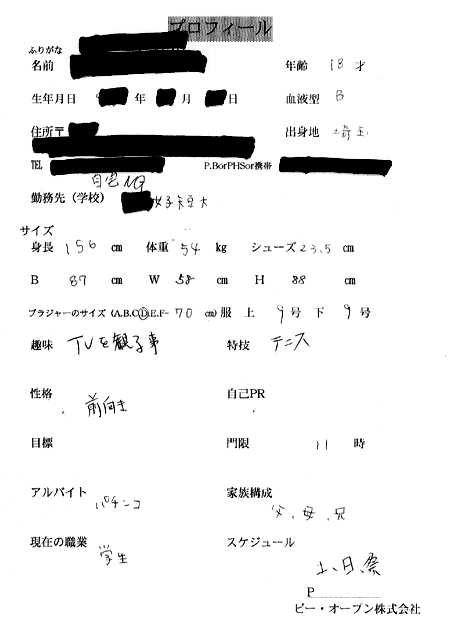 プロフィール
ふりがな
名前 年齢 18 才
生年月日 年 月 日 血液型 B
住所〒 出身地 埼玉
TEL P.BorPHSor携帯
自宅NG
勤務先（学校） 女子短大
サイズ
身長 156 cm 体重 54 kg シューズ 23.5 cm
B 87 cm W 58 cm H 88 cm
ブラジャーのサイズ（A.B.C.D.E.F- 70 cm）服 上 9 号 下 9 号
趣味 TVを観る事 特技 テニス
性格 前向き 自己PR
目標 門限 11 時
アルバイト パチンコ 家族構成 父、母、兄
現在の職業 学生 スケジュール 土、日、祭
P
ピー・オープン株式会社